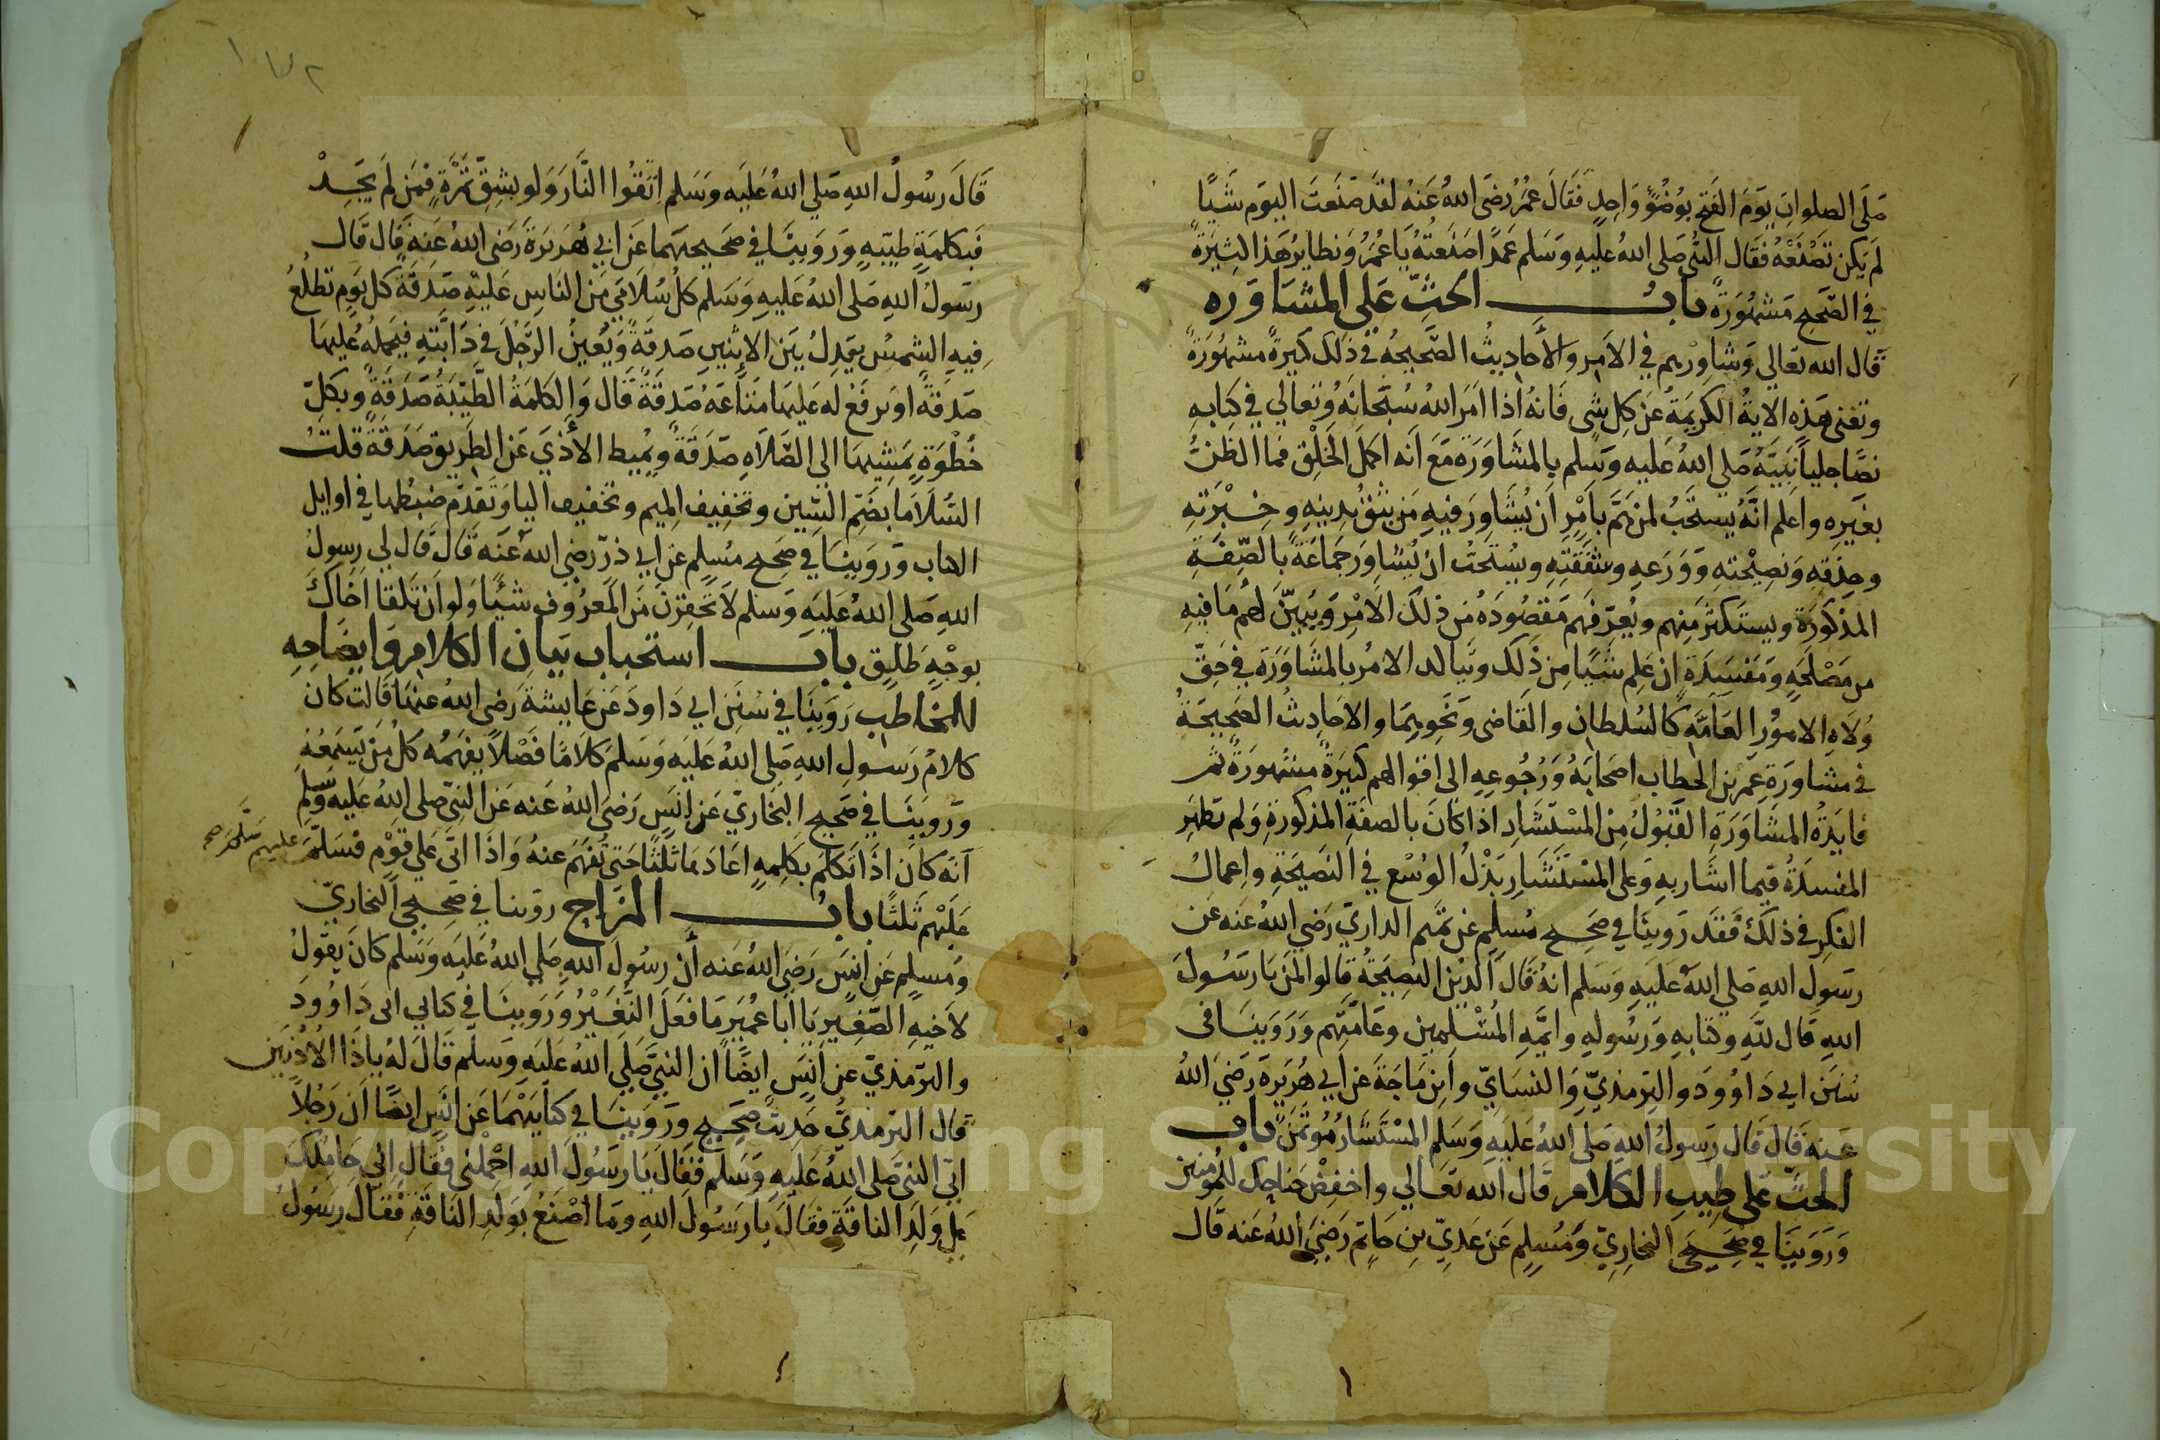 صَلَّى الصلواتِ يَوَمَ الفَتحِ بوُضُوْءٍ وَاحِدٍ فَقَالَ عُمَرُ رضَى اللهُ عَنهُ لقَد صَنَعتَ اليوَم شَيًا
لَم يَكن تَصْنَعْهُ فقَال النَّبى صَلى اللهُ عليهِ وَسَلم عَمدًا صَنَعتهُ يَا عُمَرُ وَنظايرُ هَذا كثِيَرة
في الصَّحَيح مَشهُوَرةٌ بابُ الحثِّ عَلى المشَاوَره
قَال الله تعَالي وَشاوِرْهم في الامر والأحَاديثُ الصَّحيحهُ في ذَلك كثيرةٌ مشهُوَرَةٌ
وتغنى هَذِه الاَيةُ الكريمَةُ عَن كلِ شىٍ فَانهُ اذا اَمَر اللهُ سُبْحَانَهُ وَتعَالي في كِتَابهِ
نصًّا جليًا نَبيَّهُ صَلي اللهُ عَليه وسَلم بالمشَاوَرَة مَعَ انَه اكَملَ الخَلقِ فما الظَنُّ
بغَيرِه واعَلم انَّهُ يسِتَحَبُ لمن هَمَّ بأمْرٍ اَن يُشَاوِرَ فيهِ مَن يَثقُ بِدينِهِ وَخِبْرَتِهِ
وحِذقِهِ وَنصِيْحَتهِ وَوَرَعهِ وشفَقَتِهِ ويسُتَحَبُّ ان يُشَاوِر جَمَاعَةً بالصِّفَةِ
المذكوُرَةِ ويستَكثر مَنِهم ويُعرّفَهم مَقصُودَهُ من ذلكَ الامرِ وَيبُيّنَ لهُم مَا فيهِ
من مَصْلحَةٍ وَمَفسَدَةٍ ان عَلِم شَيًا مِن ذَلكَ ويتَاكد الامُر بالمشَاوَرَة في حَقّ
وُلَاةِ الامُوُر العَامَّةِ كالسُلطانِ والقَاضى وَنَحَوهِمَا والاحَاديثُ الصَحِيحَةُ
في مشَاورَةِ عُمَر بن الخطاب اصَحابَهُ وَرُجُوعِهِ الى اقوالهم كَثِيرَةٌ مشهُورَةٌ ثم
فايدَةُ المشَاوَرَةِ القَبُولُ مِنَ المسْتَشَارِ اذا كَانَ بالصفَةِ المذكورَةِ وَلم تظهَرِ
المفسَدَةُ فيمَا اشَار بهِ وَعلى المسْتَشَارِ بَذْلُ الوُسْعِ في النَصيَحَةِ واِعمَالُ
الفكرِ في ذلكَ فَقدَ رَوينَا في صَحِيح مُسلم عَن تمَيم الداريّ رَضَي اللهُ عَنه عَن
رسَول اللهِ صَلي اللهُ عَليهِ وَسَلم انهُ قَالَ الدّين النصيَحةُ قَالوا لمَن يَا رسَوُلَ
اللهِ قَال للَّهِ وكتَابهِ وَرَسُولهِ وايمَّةِ المُسْلمين وعَامَّتِهم وَرَوَينَا فى
سُنَن ابي دَاوُودَ والتِرمذيّ وَالنسَايّ وابن مَاجَةَ عَن اَبي هُرَيرةَ رَضيَ اللهُ
عَنه قَالَ قَال رَسولُ اللهِ صَلى اللهُ عَليَهِ وَسَلم المسْتَشَارُ مُوتَمَنٌ بابُ
الحثّ عَلى طِيبِ الكَلامِ قَال الله تعَالي واخفِضْ جنَاحكَ للمُومنين
وَرَوَينَا في صَحِيحَى البخاريّ وَمُسلِمٍ عَن عَدِيّ بن حَاتم رَضيَ اللهُ عَنه قَال
١٧٢
قَالَ رسُولُ اللهِ صَلي اللهُ عَليَهِ وَسَلم اتَّقُوا النَّارَ وَلو بشِقِّ تَمرَةٍ فمَن لَم يَجِدْ
فَبكَلمَةٍ طيّبهٍ وَرَوَينَا في صَحَيحَيهمَا عَن ابي هُرَيرَةَ رَضى اللهُ عَنه قَال قَال
رسَولُ اللهِ صَلى اللهُ عَليهِ وَسَلم كلُ سُلَامَي مَن النَاسِ عَليهِ صَدَقَةٌ كلَ يَومٍ تطلُعُ
فِيهِ الشمسُ يعَدِلُ بَينَ الاثنِينِ صَدقةٌ وَيُعينُ الرَّجُلَ في دَابَّتهِ فَيحمَلُهُ عَليهَا
صَدَقَةٌ او يَرفَعْ لَهُ عَليهَا مَتَاعَهُ صَدَقَةٌ قَالَ وَالكَلمَةُ الطَّيّبَةُ صَدَقَةٌ وَبكلّ
خُطْوَةٍ يَمَشيِهَا الى الصَّلَاهِ صَدَقَةٌ وَيُميط الأذَي عَن الطَريق صَدَقَةٌ قلتُ
السُّلَامَا بضَمّ السّين وتخفِيف المِيم وتخفيف اليا وَتقدّم ضبطها في اوايل
الكتاب وَرَوَينَا في صَحَيح مسُلِم عَن ابي ذرّ رضي اللهُ عَنَه قَالَ قَال لي رسوِلُ
اللهِ صَلى اللهُ عَليَهِ وَسَلم لاَ تَحَقِرَنَّ مَن المعرُوفِ شَيًا وَلَو اَن تَلقا اَخَاكَ
بوجْهٍ طَليقٍ بابُ استحباب بَيَانِ الكَلَامِ وَايضَاحِهِ
للمخَاطب رَوَينَا في سُنَن ابي دَاودَ عَن عَايشةَ رَضى اللهُ عَنهَا قَالت كَانَ
كلامُ رَسولِ اللهِ صَلى اللهُ عَليَهِ وَسَلم كَلَامًا فَصْلًا يَفهَمُه كلُ مَن يَسَمعُه
وَرَويَنَا في صَحِيح البخَاريّ عَن انَسٍ رَضيَ اللهُ عَنه عَن النبىّ صلى اللهُ عَليهِ وَسَلم
اَنَه كَان اذَا تَكلمَ بكَلِمهٍ اعَادَهَا ثلثًا حَتى تُفهَمَ عنهُ وَاذَا اتىَ عَلى قَوْمٍ فسَلّمَ عليهم سَلَّمَ صح
عَليْهم ثلثًا بابُ المزَاح روَينا في صَحِيحَي البخَاريّ
وَمُسلمٍ عَن انَسٍ رَضىَ اللهُ عَنه أن رسُولَ اللهِ صَلي اللهُ عَليَهِ وَسَلم كَانَ يقَولُ
لأخيهِ الصّغِير يَا ابَا عُميَر مَا فعَلَ النُّغَيْرُ وَرَوَينَا في كتابي ابى دَاوُودَ
والترّمذيّ عن اَنَسٍ ايضًا ان النبيَّ صَلَي اللهُ عَليهِ وَسَلم قَالَ لهُ يا ذَا الاُذُنَين
قَال التِرمذيُّ حَديثٌ صَحيح وَرَوَينَا في كتَابَيْهمَا عَن انَسٍ ايضًا اَن رَجُلاً
اتى النبىّ صَلى اللهُ عَليهِ وسَلم فقَالَ يَا رسَوُلَ اللهِ احْمِلني فقَالَ اني حَامِلكَ
عَلى وَلَدَ الناقَةِ فقَالَ يا رسَولَ اللهِ وَمَا اصْنَعُ بوَلدِ النَاقَةِ فقَالَ رسَوُلُ
Copyright © King Saud University